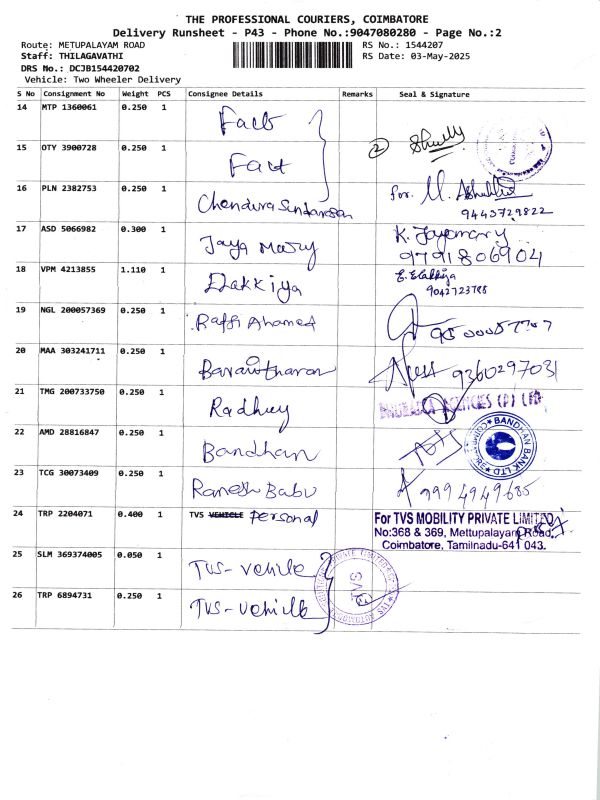 THE PROFESSIONAL COURIERS, COIMBATORE
Delivery Runsheet - P43 - Phone No.:9047080280 - Page No.:2
Route: METUPALAYAM ROAD RS No.: 1544207
Staff: THILAGAVATHI RS Date: 03-May-2025
DRS No.: DCJB154420702
Vehicle: Two Wheeler Delivery
S No Consignment No Weight PCS Consignee Details Remarks Seal & Signature
14 MTP 1360061 0.250 1 Fact
15 OTY 3900728 0.250 1 Fact 2
16 PLN 2382753 0.250 1 Chandura Sundarasan for. M.
9443729822
17 ASD 5066982 0.300 1 Jaya Mary K. Jayamary
9791806904
18 VPM 4213855 1.110 1 Elakkiya E. Elakkiya
9042723788
19 NGL 200057369 0.250 1 Raffi Ahamed
20 MAA 303241711 0.250 1 9360297031
21 TMG 200733750 0.250 1 Radhey AGENCIES (P) LTD
22 AMD 28816847 0.250 1 Bandhan BANDHAN BANK LTD
23 TCG 30073409 0.250 1 Ramesh Babu 9994949685
24 TRP 2204071 0.400 1 TVS VEHICLE Personal For TVS MOBILITY PRIVATE LIMITED
No:368 & 369, Mettupalayam Road,
Coimbatore, Tamilnadu-641 043.
25 SLM 369374005 0.050 1 TVS-vehicle
26 TRP 6894731 0.250 1 TVS-vehicle